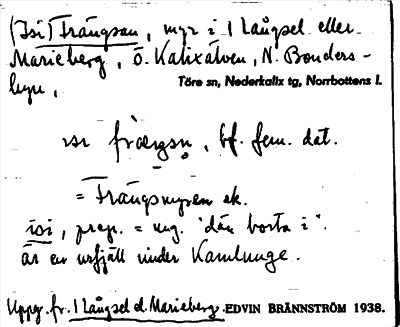 (Isi) Frångsan, myr i 1 Långsel eller
Marieberg, Ö. Kalixälven, N. Bonders-
byn,
Töre sn, Nederkalix tg, Norrbottens l.
bf. fem. dat.
= Frångsmyren ek.
isi, prep. = ung. "där borta i".
är en utfjäll under Kamlunge.
Uppg. fr. 1 Långsel el. Marieberg. EDVIN BRÄNNSTRÖM 1938.